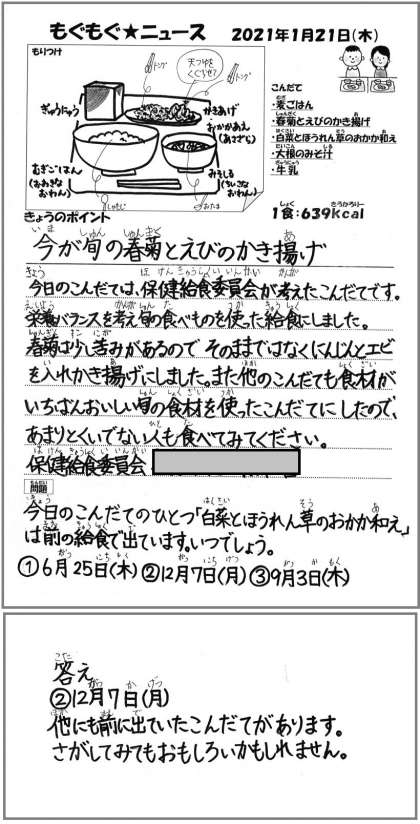 もぐもぐ★ニュース 2021年1月21日(木)
もりつけ
トング
天つゆを
くぐらせる?
トング
ぎゅうにゅう
かきあげ
おかかあえ
(あさざら)
むぎごはん
(おおきな
おわん)
みそしる
(ちいさな
おわん)
しゃもじ
おたま
こんだて
・麦ごはん
・春菊とえびのかき揚げ
・白菜とほうれん草のおかか和え
・大根のみそ汁
・牛乳
1食:639kcal
きょうのポイント
今が旬の春菊とえびのかき揚げ
今日のこんだては、保健給食委員会が考えたこんだてです。
栄養バランスを考え旬の食べものを使った給食にしました。
春菊は少し苦みがあるので そのままではなくにんじんとエビ
を入れかき揚げにしました。また他のこんだても食材が
いちばんおいしい旬の食材を使ったこんだてにしたので、
あまりとくいでない人も食べてみてください。
保健給食委員会
問題
今日のこんだてのひとつ「白菜とほうれん草のおかか和え」
は前の給食で出ています。いつでしょう。
①6月25日(木) ②12月7日(月) ③9月3日(木)
答え
②12月7日(月)
他にも前に出ていたこんだてがあります。
さがしてみてもおもしろいかもしれません。